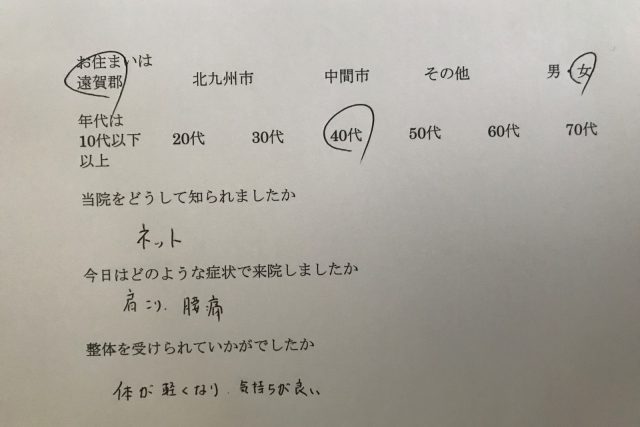 お住まいは
遠賀郡 北九州市 中間市 その他 男・女
年代は
10代以下 20代 30代 40代 50代 60代 70代
以上
当院をどうして知られましたか
ネット
今日はどのような症状で来院しましたか
肩こり、腰痛
整体を受けられていかがでしたか
体が軽くなり、気持ちが良い、